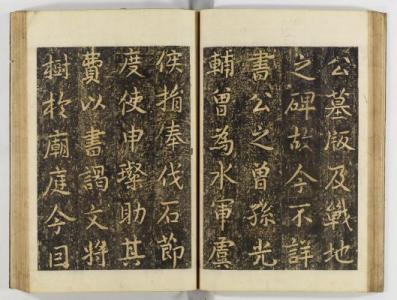 公墓版及戰地
之碑故今不詳
書公之曾孫光
輔曾為水軍虞
侯捐俸伐石節
度使申璨助其
費以書謁文將
樹於廟庭今曰